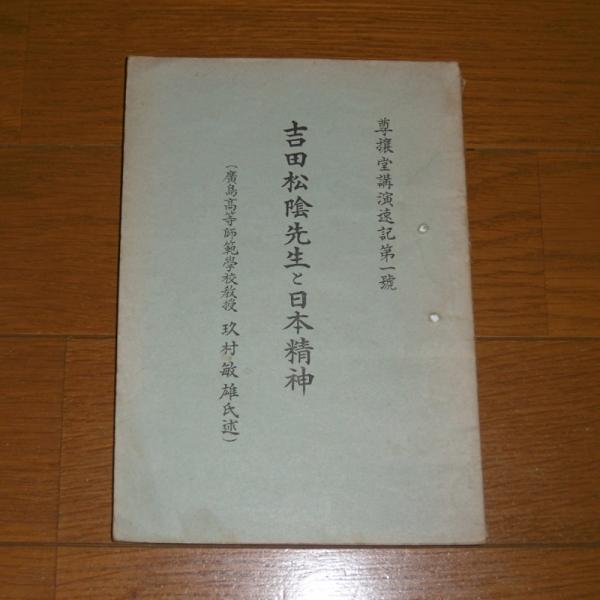 尊攘堂講演速記第一號
吉田松陰先生と日本精神
（廣島高等師範學校教授 玖村敏雄氏述）